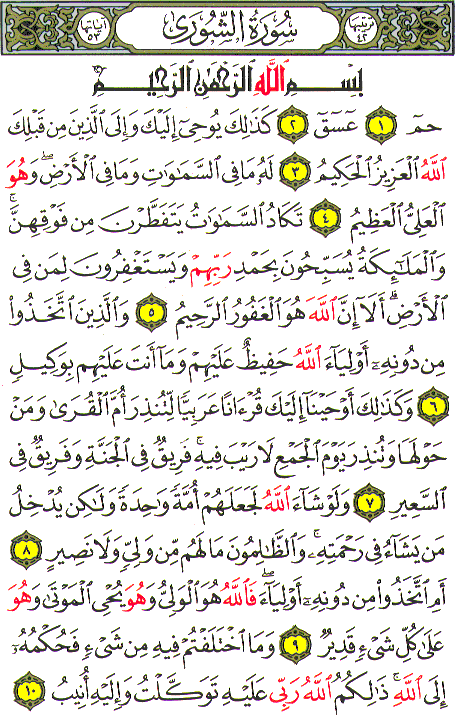 ترتيبها ٤٢ سُورَةُ الشُّورَىٰ آياتها ٥٣
بِسْمِ اللَّهِ الرَّحْمَٰنِ الرَّحِيمِ
حمٓ ١ عٓسٓقٓ ٢ كَذَٰلِكَ يُوحِىٓ إِلَيْكَ وَإِلَى ٱلَّذِينَ مِن قَبْلِكَ
ٱللَّهُ ٱلْعَزِيزُ ٱلْحَكِيمُ ٣ لَهُۥ مَا فِى ٱلسَّمَٰوَٰتِ وَمَا فِى ٱلْأَرْضِ ۖ وَهُوَ
ٱلْعَلِىُّ ٱلْعَظِيمُ ٤ تَكَادُ ٱلسَّمَٰوَٰتُ يَتَفَطَّرْنَ مِن فَوْقِهِنَّ ۚ
وَٱلْمَلَٰٓئِكَةُ يُسَبِّحُونَ بِحَمْدِ رَبِّهِمْ وَيَسْتَغْفِرُونَ لِمَن فِى
ٱلْأَرْضِ ۗ أَلَآ إِنَّ ٱللَّهَ هُوَ ٱلْغَفُورُ ٱلرَّحِيمُ ٥ وَٱلَّذِينَ ٱتَّخَذُوا۟
مِن دُونِهِۦٓ أَوْلِيَآءَ ٱللَّهُ حَفِيظٌ عَلَيْهِمْ وَمَآ أَنتَ عَلَيْهِم بِوَكِيلٍ
٦ وَكَذَٰلِكَ أَوْحَيْنَآ إِلَيْكَ قُرْءَانًا عَرَبِيًّا لِّتُنذِرَ أُمَّ ٱلْقُرَىٰ وَمَنْ
حَوْلَهَا وَتُنذِرَ يَوْمَ ٱلْجَمْعِ لَا رَيْبَ فِيهِ ۚ فَرِيقٌ فِى ٱلْجَنَّةِ وَفَرِيقٌ فِى
ٱلسَّعِيرِ ٧ وَلَوْ شَآءَ ٱللَّهُ لَجَعَلَهُمْ أُمَّةً وَٰحِدَةً وَلَٰكِن يُدْخِلُ
مَن يَشَآءُ فِى رَحْمَتِهِۦ ۚ وَٱلظَّٰلِمُونَ مَا لَهُم مِّن وَلِىٍّ وَلَا نَصِيرٍ ٨
أَمِ ٱتَّخَذُوا۟ مِن دُونِهِۦٓ أَوْلِيَآءَ ۖ فَٱللَّهُ هُوَ ٱلْوَلِىُّ وَهُوَ يُحْىِ ٱلْمَوْتَىٰ وَهُوَ
عَلَىٰ كُلِّ شَىْءٍ قَدِيرٌ ٩ وَمَا ٱخْتَلَفْتُمْ فِيهِ مِن شَىْءٍ فَحُكْمُهُۥٓ
إِلَى ٱللَّهِ ۚ ذَٰلِكُمُ ٱللَّهُ رَبِّى عَلَيْهِ تَوَكَّلْتُ وَإِلَيْهِ أُنِيبُ ١٠